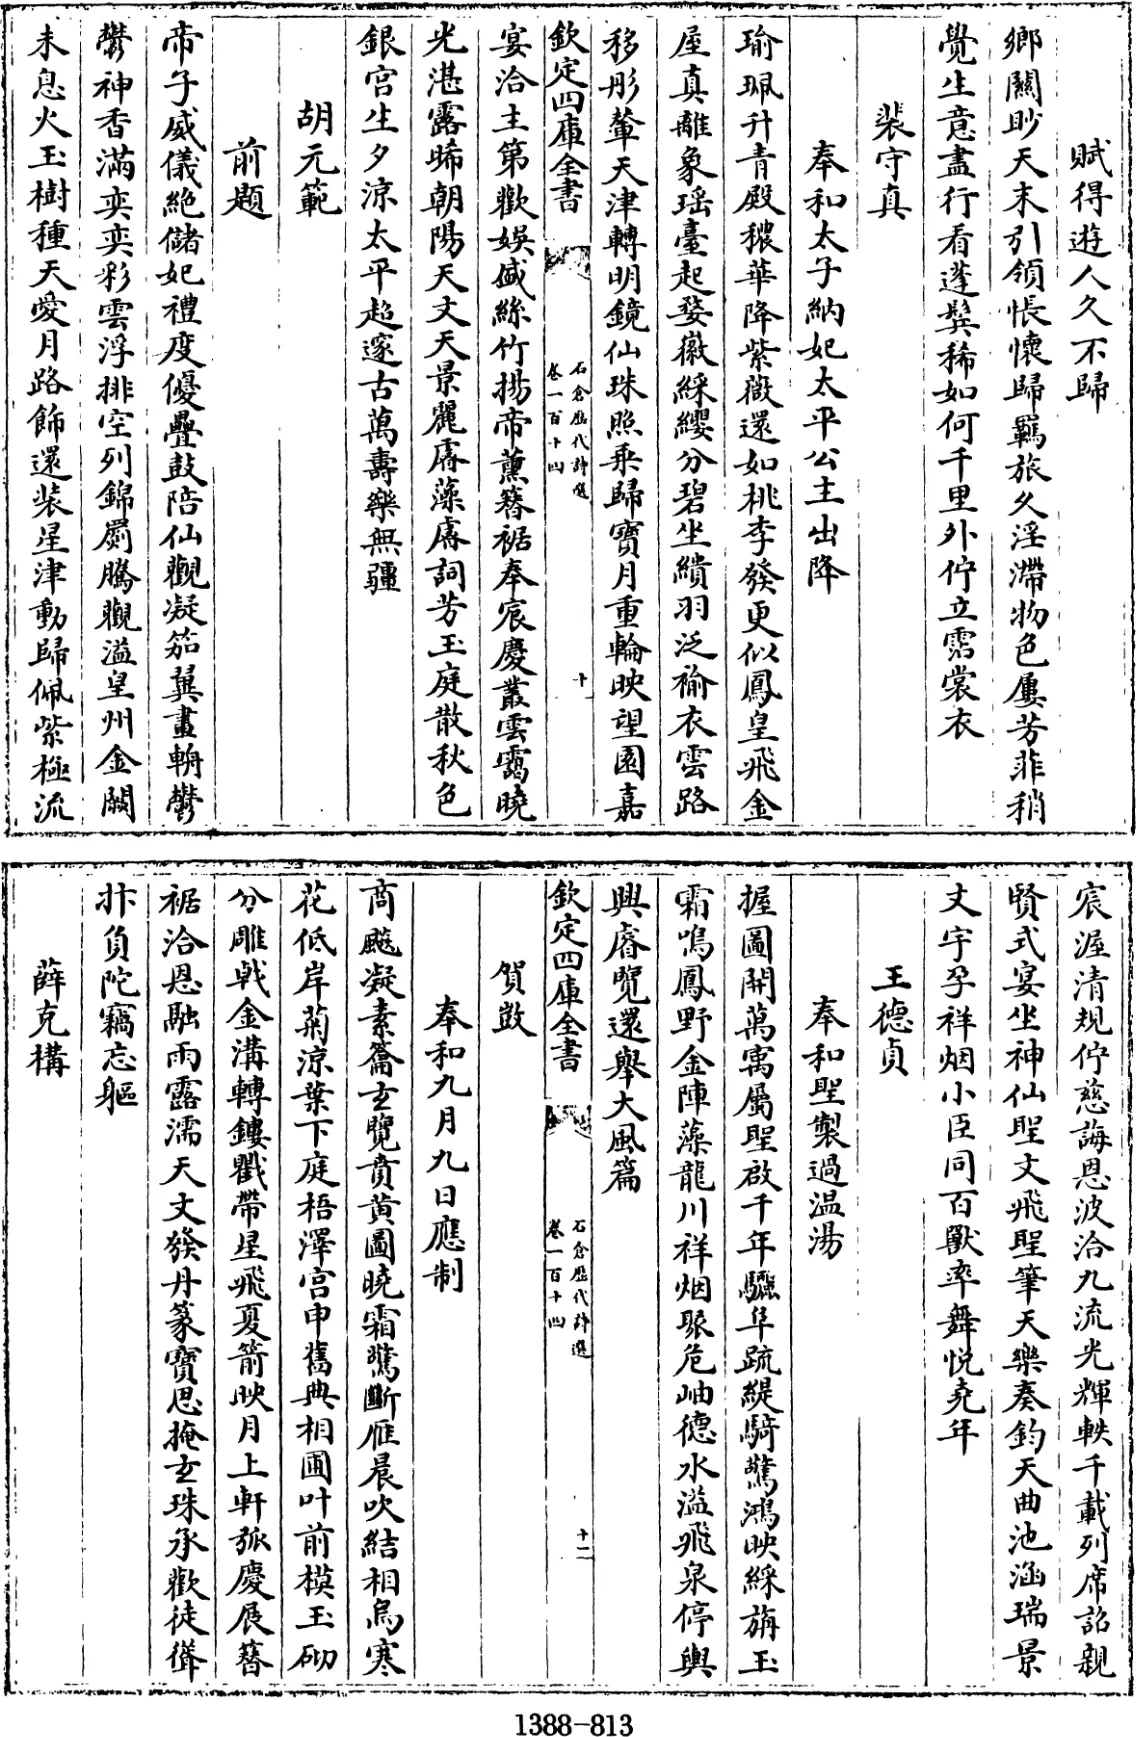 賦得遊人久不歸
鄉關眇天末引領悵懷歸羈旅久淫滯物色屢芳菲稍
覺生意盡行看蓬鬢稀如何千里外佇立霑裳衣
裴守真
奉和太子納妃太平公主出降
瑜珮升青殿穠華降紫微還如桃李發更似鳳皇飛金
屋真離象瑶臺起婺徽綵纓分碧坐繢羽泛褕衣雲路
移彤輦天津轉明鏡仙珠照乘歸寶月重輪映望園嘉
欽定四庫全書
石倉歴代詩選
卷一百十四
十
宴洽主第歡娛盛絲竹揚帝薰簪裾奉宸慶叢雲靄曉
光湛露晞朝陽天文天景麗睿藻睿詞芳玉庭散秋色
銀宫生夕涼太平超邃古萬壽樂無疆
胡元範
前題
帝子威儀絶儲妃禮度優疊鼓陪仙觀凝笳翼畫輈鬱
鬱神香滿奕奕彩雲浮排空列錦罽騰觀溢皇州金闕
未息火玉樹種天愛月路飾還装星津動歸佩紫極流
宸渥清規佇慈誨恩波洽九流光輝軼千載列席詔親
賢式宴坐神仙聖文飛聖筆天樂奏鈞天曲池涵瑞景
文宇孕祥烟小臣同百獸率舞悦堯年
王德貞
奉和聖製過温湯
握圖開萬㝢屬聖啟千年驪阜疏緹騎驚鴻映綵旃玉
霜鳴鳳野金陣藻龍川祥烟聚危岫德水溢飛泉停輿
興睿覽還舉大風篇
欽定四庫全書
石倉歴代詩選
卷一百十四
十二
賀敳
奉和九月九日應制
商飈凝素籥玄覽賁黄圖曉霜驚斷雁晨吹結相烏寒
花低岸菊涼葉下庭梧澤宫申舊典相圃叶前模玉砌
分雕戟金溝轉鏤衢帶星飛夏箭映月上軒弧慶展簪
裾洽恩融雨露濡天文發丹篆寶思掩玄珠承歡徒聳
抃負陀竊忘軀
薛克構
1388-813